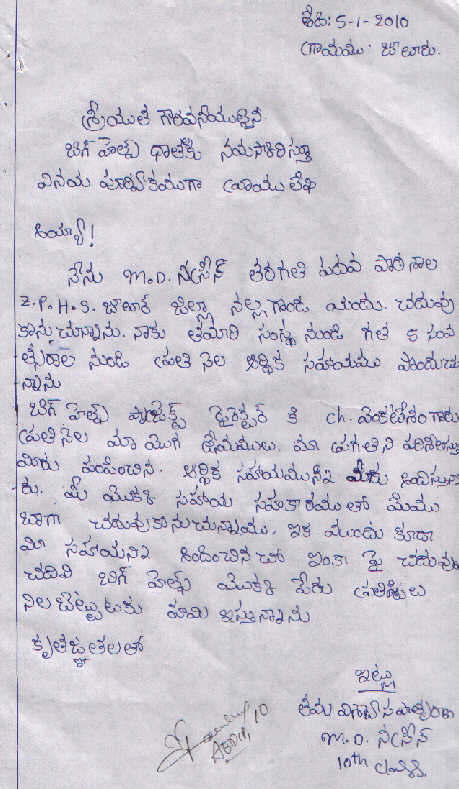 తేది: 5-1-2010
గ్రామము: జాలూరు.
శ్రీయుత గౌరవనీయులైన
బిగ్ హెల్ప్ దాతలకు నమస్కరిస్తూ
వినయ పూర్వకముగా వ్రాయు లేఖ
అయ్యా!
నేను M.D. నస్రీన్ తరగతి పదవ పాఠశాల
Z.P.H.S. జాలూర్ జిల్లా నల్లగొండ యందు. చదువు
కొనుచున్నాను. నాకు తమారి సంస్థ నుండి గత 5 సంవ
త్సరాల నుండి ప్రతి నెల ఆర్థిక సహాయము పొందుచు
న్నాను
బిగ్ హెల్ప్ ప్రాజెక్ట్స్ డైరెక్టర్ కి ch. వెంకటేశం గారు
ప్రతి నెల మా యోగ క్షేమములు. మా ప్రగతిని పరిశీలిస్తూ
మీరు పంపించిన. ఆర్థిక సహాయమునే మాకు అందిస్తున్నా
రు. మీ యొక్క సహాయ సహకారములతో మేము
బాగా చదువుకొనుచున్నాము. ఇక ముందు కూడా
మీ సహాయని అందించినచో ఇంకా పై చదువులు
చదివి బిగ్ హెల్ప్ యొక్క పేరు ప్రతిష్టలు
నిలబెట్టుటకు హామి ఇస్తున్నాను
కృతజ్ఞతలతో
ఇట్లు
తమ విశ్వాసపాత్రురాలు
M.D. నస్రీన్
10th class